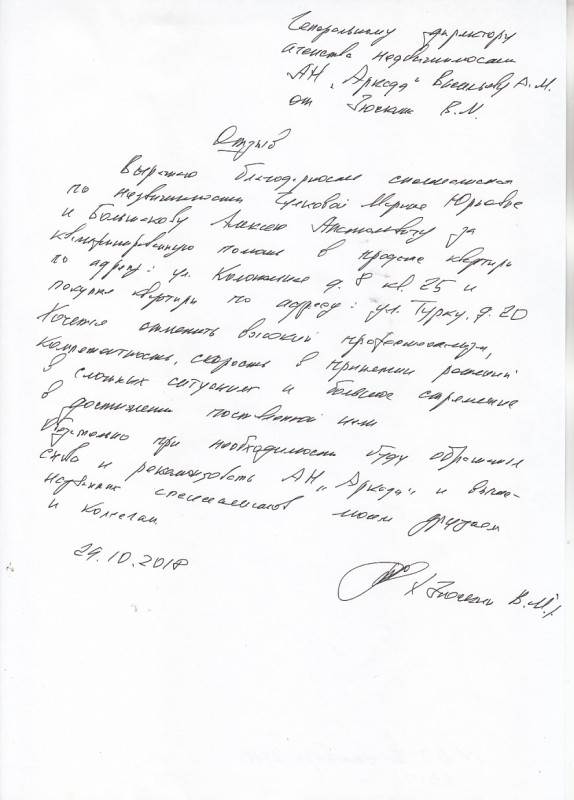 Генеральному директору
агенства недвижимости
АН „Аркада" А.М.
от В.М.
Отзыв
Выражаю благодарность специалистам
по недвижимости Марине Юрьевне
и Большакову Алексею Анатольевичу за
квалифицированную помощь в продаже квартиры
по адресу: ул. Коллонтай д. 8 кв. 25 и
покупке квартиры по адресу: ул. Турку, д. 20
Хочется отметить высокий профессионализм,
компетентность, скорость в принятии решений
в сложных ситуациях и большое стремление
в достижении поставленной цели
Обязательно при необходимости буду обращаться
снова и рекомендовать АН „Аркада" и выше-
названных специалистов моим друзьям
и коллегам
29.10.2018
В.М.